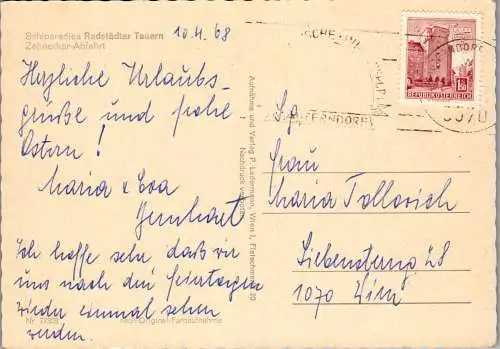 Schiparadies Radstädter Tauern
Zehnerkar-Abfahrt
10.4.68
Herzliche Urlaubs-
grüße und frohe
Ostern!
Maria u Eva
Ich hoffe sehr daß wir
uns nach den Feiertagen
wieder einmal sehen
werden.
Nr.
nach Original-Farbaufnahme
Aufnahme und Verlag P. Ledermann, Wien I, Fleischmarkt 20
Nachdruck verboten
REPUBLIK ÖSTERREICH
1.50
Sg.
Frau
Maria Tollovich
Siebensterng 28
1070 Wien